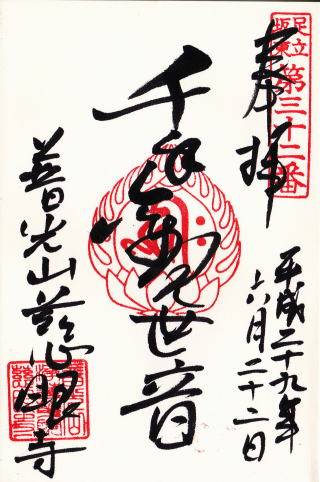 足立
坂東
第三十二番
奉拝
平成二十九年
六月二十二日
千手観世音
普光山慈眼寺